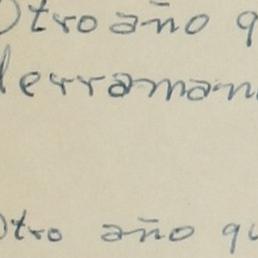 Otro año q
derraman
Otro año qu